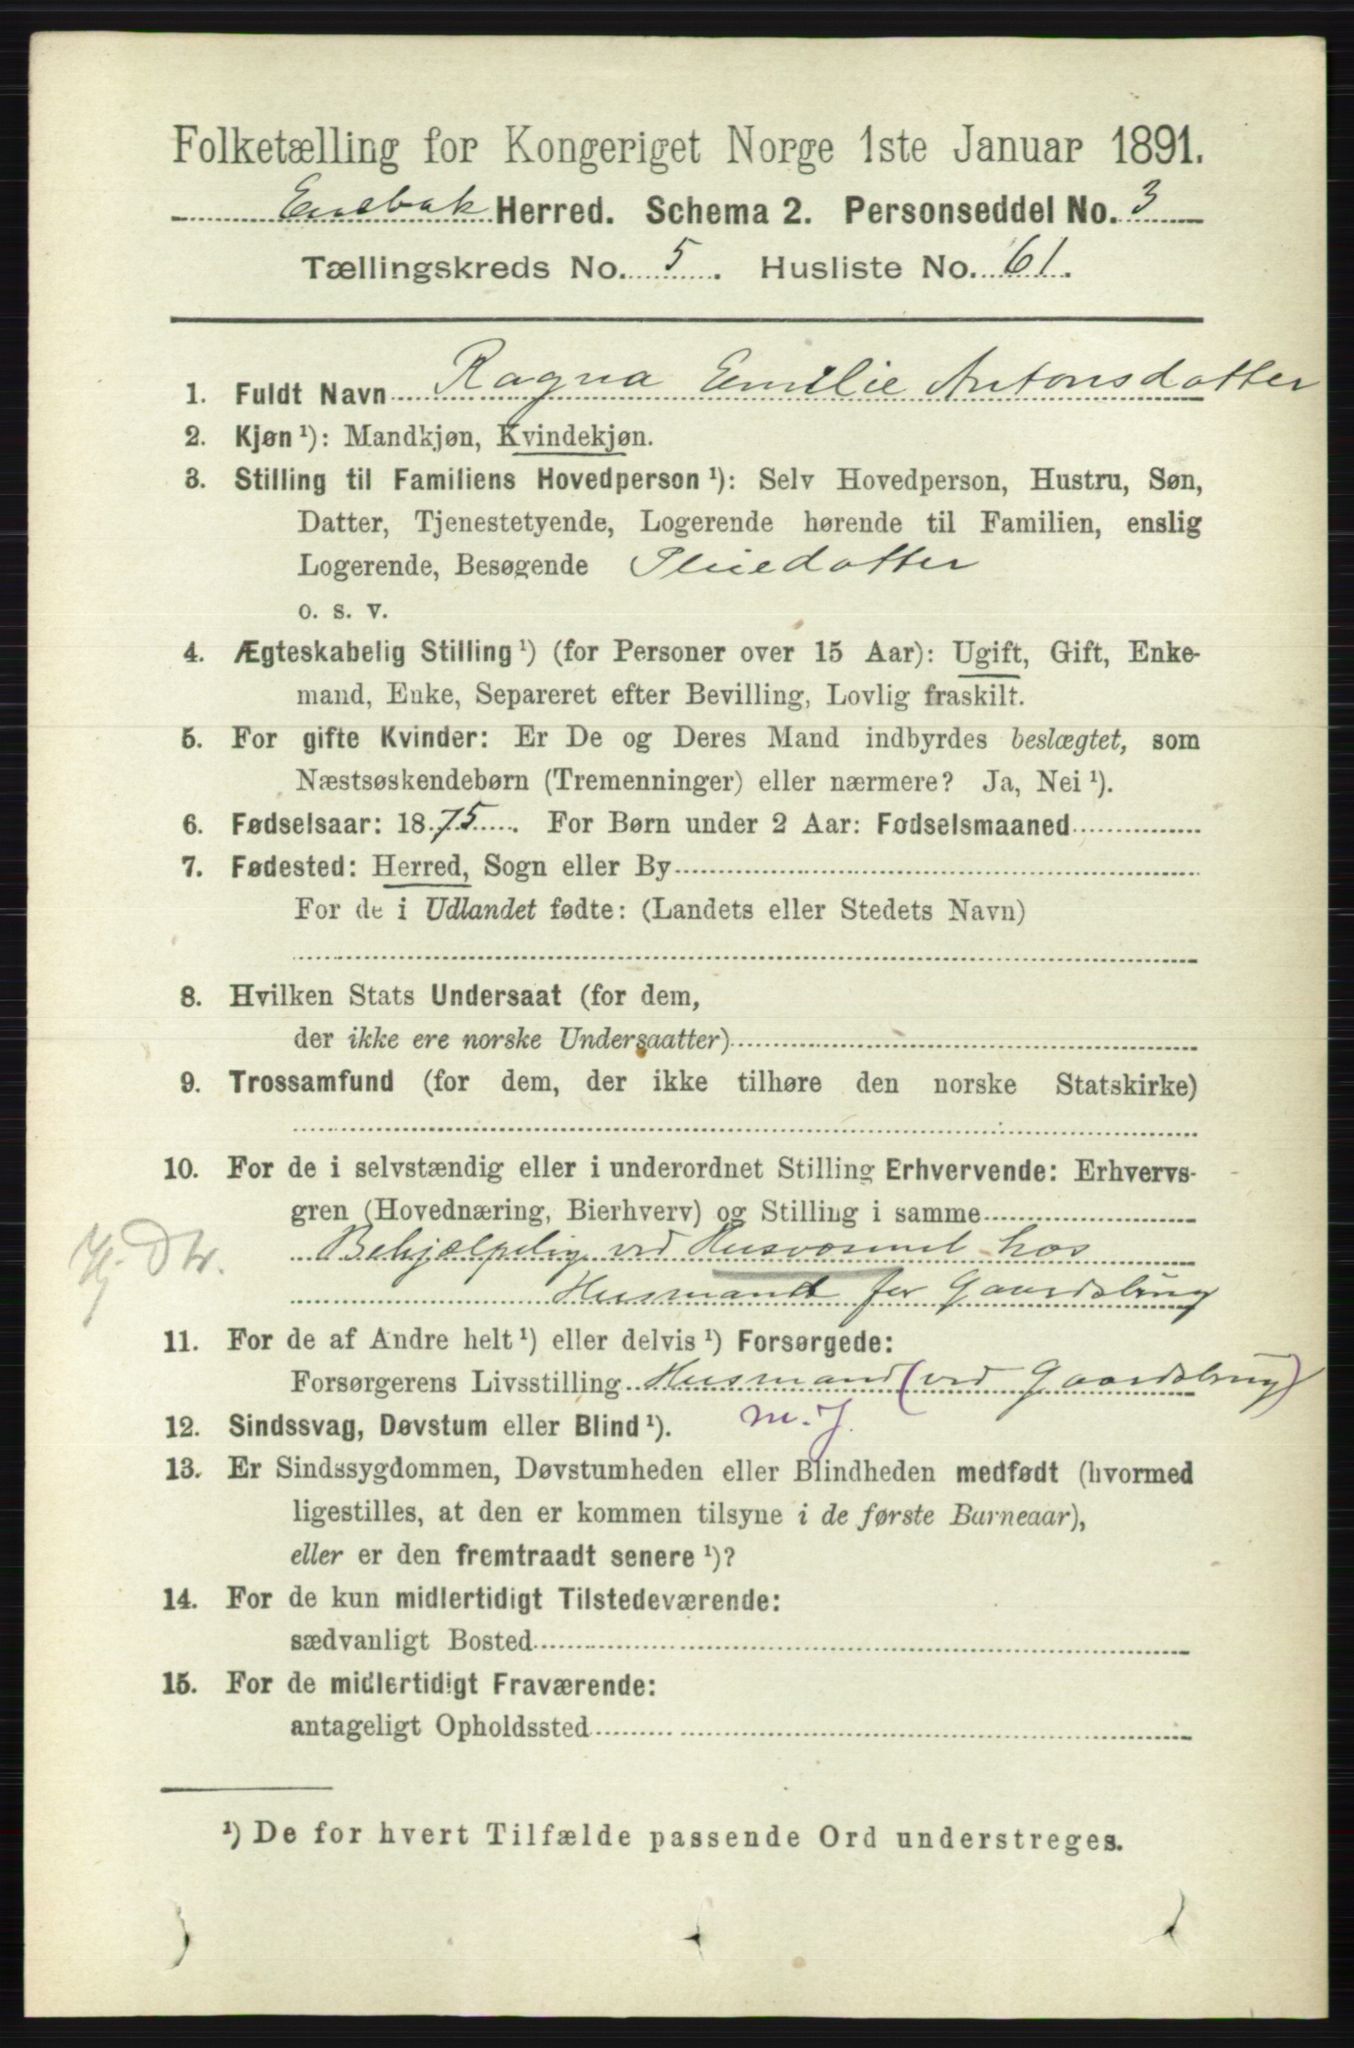 Folketælling for Kongeriget Norge 1ste Januar 1891.
Enebak Herred. Schema 2. Personseddel No. 3
Tællingskreds No. 5. Husliste No. 61.
1. Fuldt Navn Ragna Emilie Antonsdatter
2. Kjøn ¹): Mandkjøn, Kvindekjøn.
3. Stilling til Familiens Hovedperson ¹): Selv Hovedperson, Hustru, Søn,
Datter, Tjenestetyende, Logerende hørende til Familien, enslig
Logerende, Besøgende Pleiedatter
o. s. v.
4. Ægteskabelig Stilling ¹) (for Personer over 15 Aar): Ugift, Gift, Enke-
mand, Enke, Separeret efter Bevilling, Lovlig fraskilt.
5. For gifte Kvinder: Er De og Deres Mand indbyrdes beslægtet, som
Næstsøskendebørn (Tremenninger) eller nærmere? Ja, Nei ¹).
6. Fødselsaar: 1875. For Børn under 2 Aar: Fødselsmaaned
7. Fødested: Herred, Sogn eller By
For de i Udlandet fødte: (Landets eller Stedets Navn)
8. Hvilken Stats Undersaat (for dem,
der ikke ere norske Undersaatter)
9. Trossamfund (for dem, der ikke tilhøre den norske Statskirke)
10. For de i selvstændig eller i underordnet Stilling Erhvervende: Erhvervs-
gren (Hovednæring, Bierhverv) og Stilling i samme
Behjælpelig ved Husvæsenet hos
Husmand for Gaardsbrug
11. For de af Andre helt ¹) eller delvis ¹) Forsørgede:
Forsørgerens Livsstilling Husmand (ved Gaardsbrug)
m. J.
12. Sindssvag, Døvstum eller Blind ¹).
13. Er Sindssygdommen, Døvstumheden eller Blindheden medfødt (hvormed
ligestilles, at den er kommen tilsyne i de første Barneaar),
eller er den fremtraadt senere ¹)?
14. For de kun midlertidigt Tilstedeværende:
sædvanligt Bosted
15. For de midlertidigt Fraværende:
antageligt Opholdssted
¹) De for hvert Tilfælde passende Ord understreges.